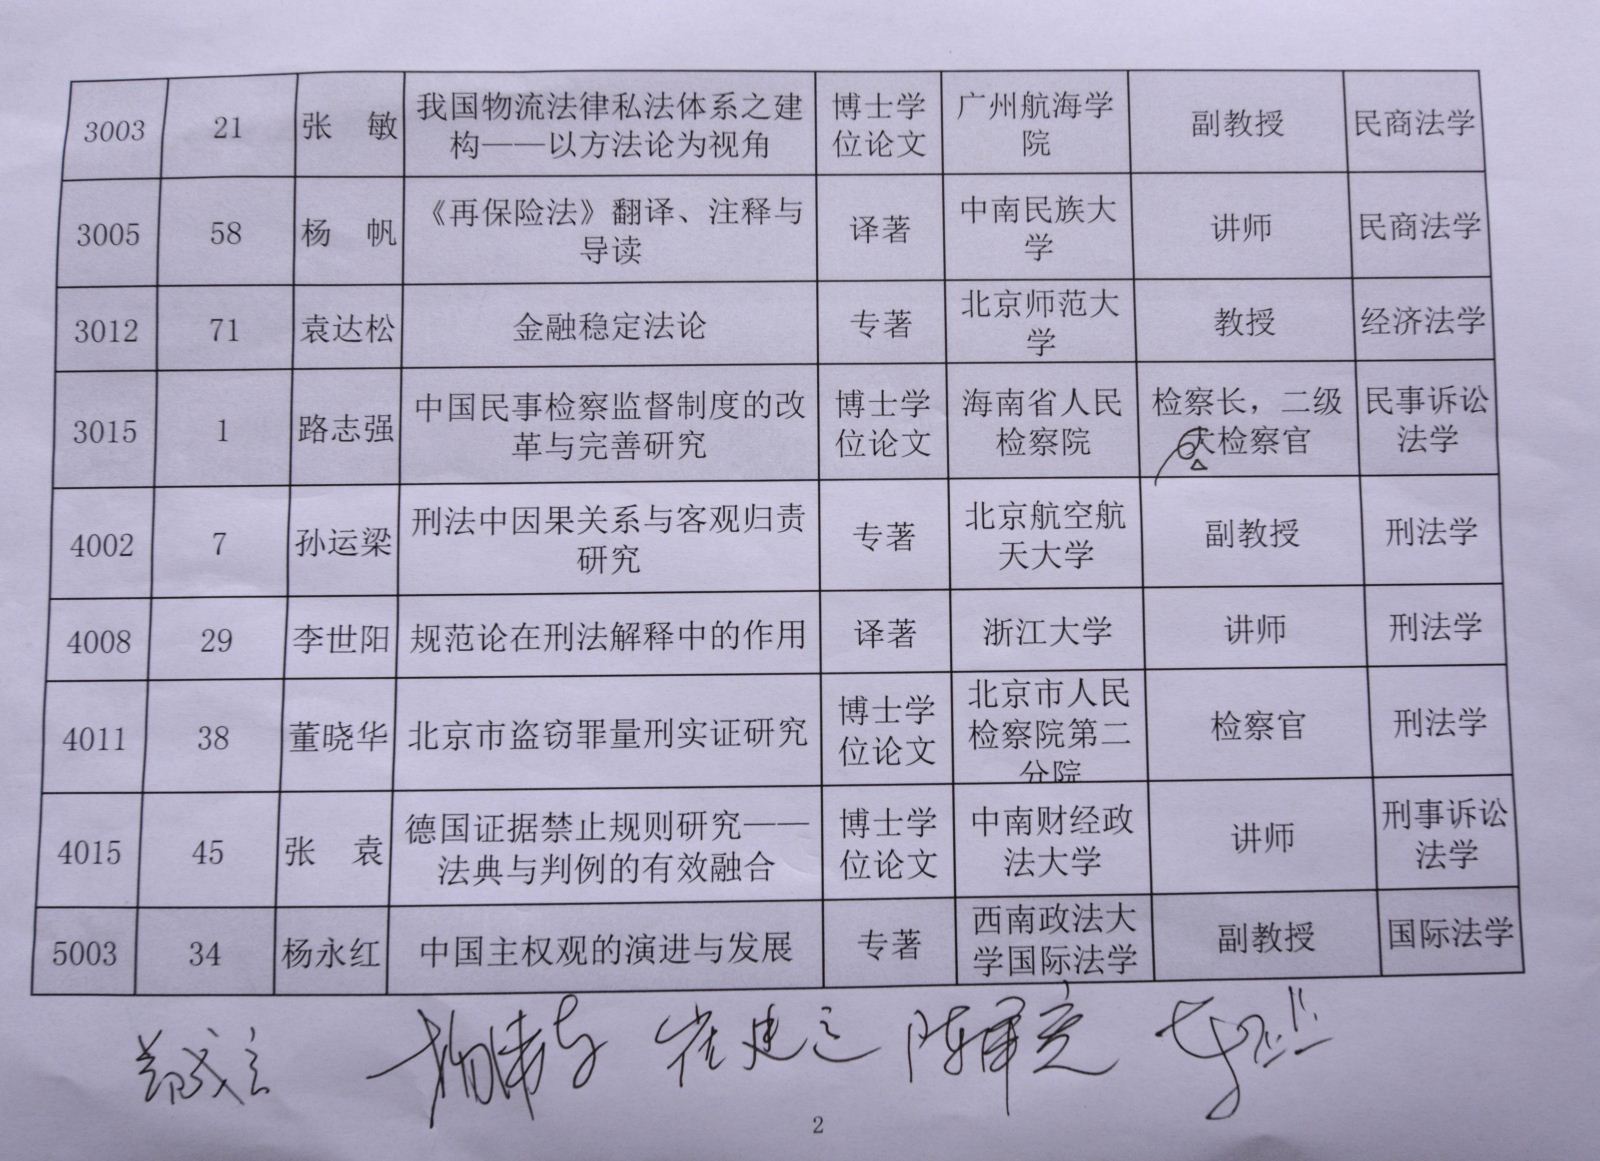 3003 21 张 敏 我国物流法律私法体系之建 博士学 广州航海学 副教授 民商法学
构——以方法论为视角 位论文 院
3005 58 杨 帆 《再保险法》翻译、注释与 译著 中南民族大 讲师 民商法学
导读 学
3012 71 袁达松 金融稳定法论 专著 北京师范大 教授 经济法学
学
3015 1 路志强 中国民事检察监督制度的改 博士学 海南省人民 检察长，二级 民事诉讼
革与完善研究 位论文 检察院 大检察官 法学
4002 7 孙运梁 刑法中因果关系与客观归责 专著 北京航空航 副教授 刑法学
研究 天大学
4008 29 李世阳 规范论在刑法解释中的作用 译著 浙江大学 讲师 刑法学
4011 38 董晓华 北京市盗窃罪量刑实证研究 博士学 北京市人民 检察官 刑法学
位论文 检察院第二
分院
4015 45 张 袁 德国证据禁止规则研究—— 博士学 中南财经政 讲师 刑事诉讼
法典与判例的有效融合 位论文 法大学 法学
5003 34 杨永红 中国主权观的演进与发展 专著 西南政法大 副教授 国际法学
学国际法学
崔建远
2